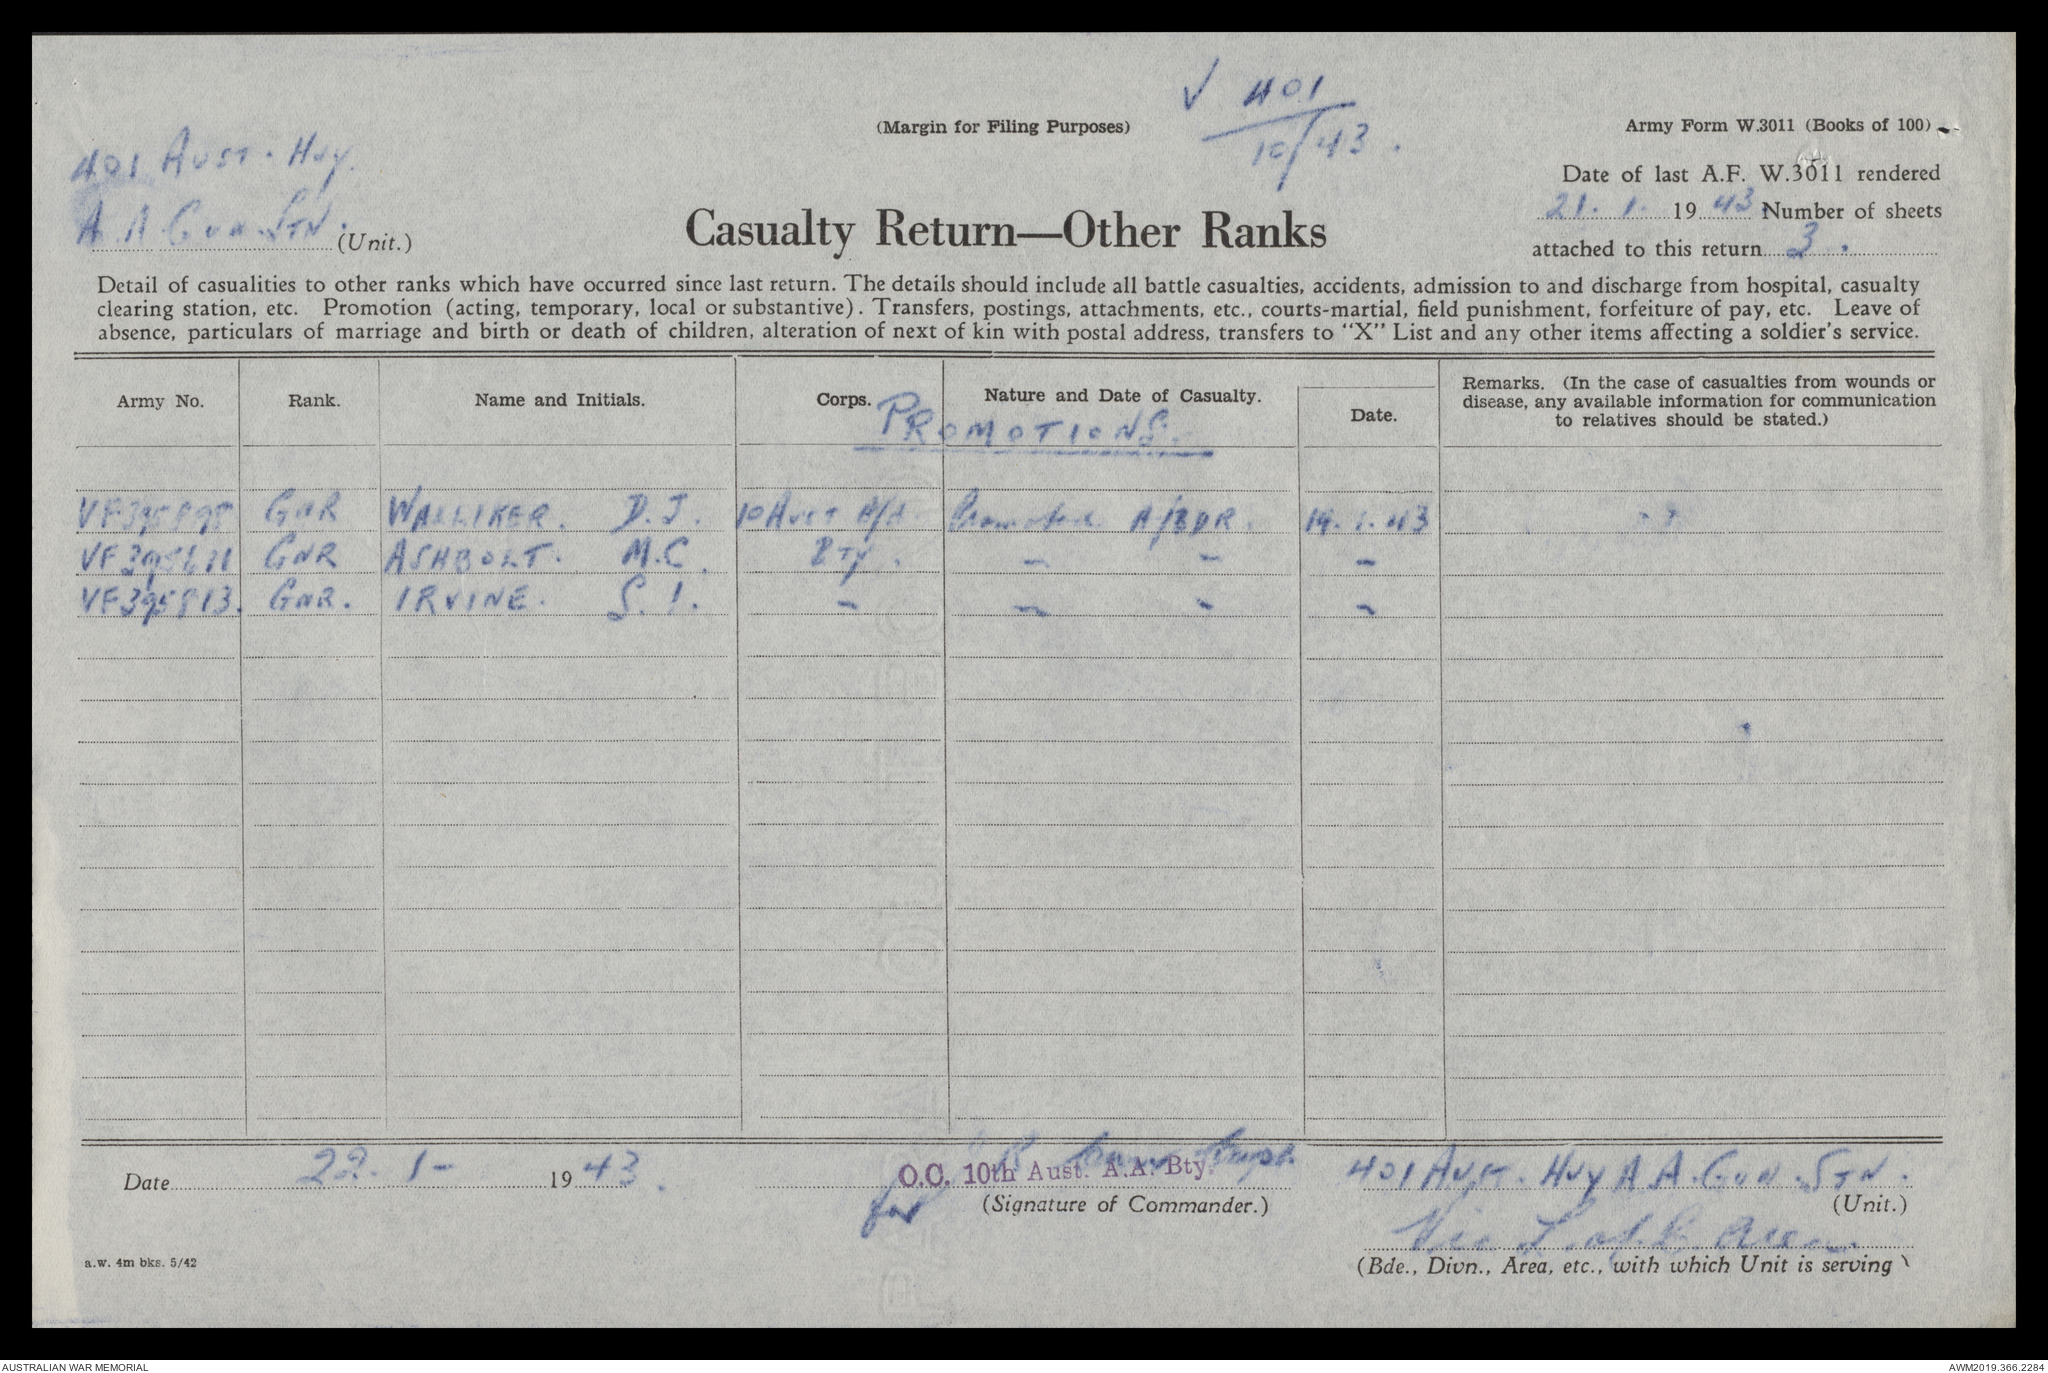 ✓ 401
10/43.
(Margin for Filing Purposes)
Army Form W.3011 (Books of 100)
401 AUST. HVY.
A A GUN STN. (Unit.)
Casualty Return—Other Ranks
Date of last A.F. W.3011 rendered
21. 1. 19 43. Number of sheets
attached to this return 3.
Detail of casualities to other ranks which have occurred since last return. The details should include all battle casualties, accidents, admission to and discharge from hospital, casualty
clearing station, etc. Promotion (acting, temporary, local or substantive). Transfers, postings, attachments, etc., courts-martial, field punishment, forfeiture of pay, etc. Leave of
absence, particulars of marriage and birth or death of children, alteration of next of kin with postal address, transfers to "X" List and any other items affecting a soldier's service.
Army No. Rank. Name and Initials. Corps. Nature and Date of Casualty. Date. Remarks. (In the case of casualties from wounds or
disease, any available information for communication
to relatives should be stated.)
PROMOTIONS.
GNR WALLIKER. D.J. 10 AUST A/A Promoted A/BDR. 19.1.43
GNR ASHBOLT. M.C. BTY. — — —
VF395813. GNR. IRVINE. S.I. — — — —
Date 22. 1- 19 43.
O.C. 10th Aust. A.A. Bty.
for (Signature of Commander.)
401 AUST. HVY A A. GUN. STN.
(Unit.)
Vic L of C Area
(Bde., Divn., Area, etc., with which Unit is serving)
a.w. 4m bks. 5/42
AUSTRALIAN WAR MEMORIAL
AWM2019.366.2284